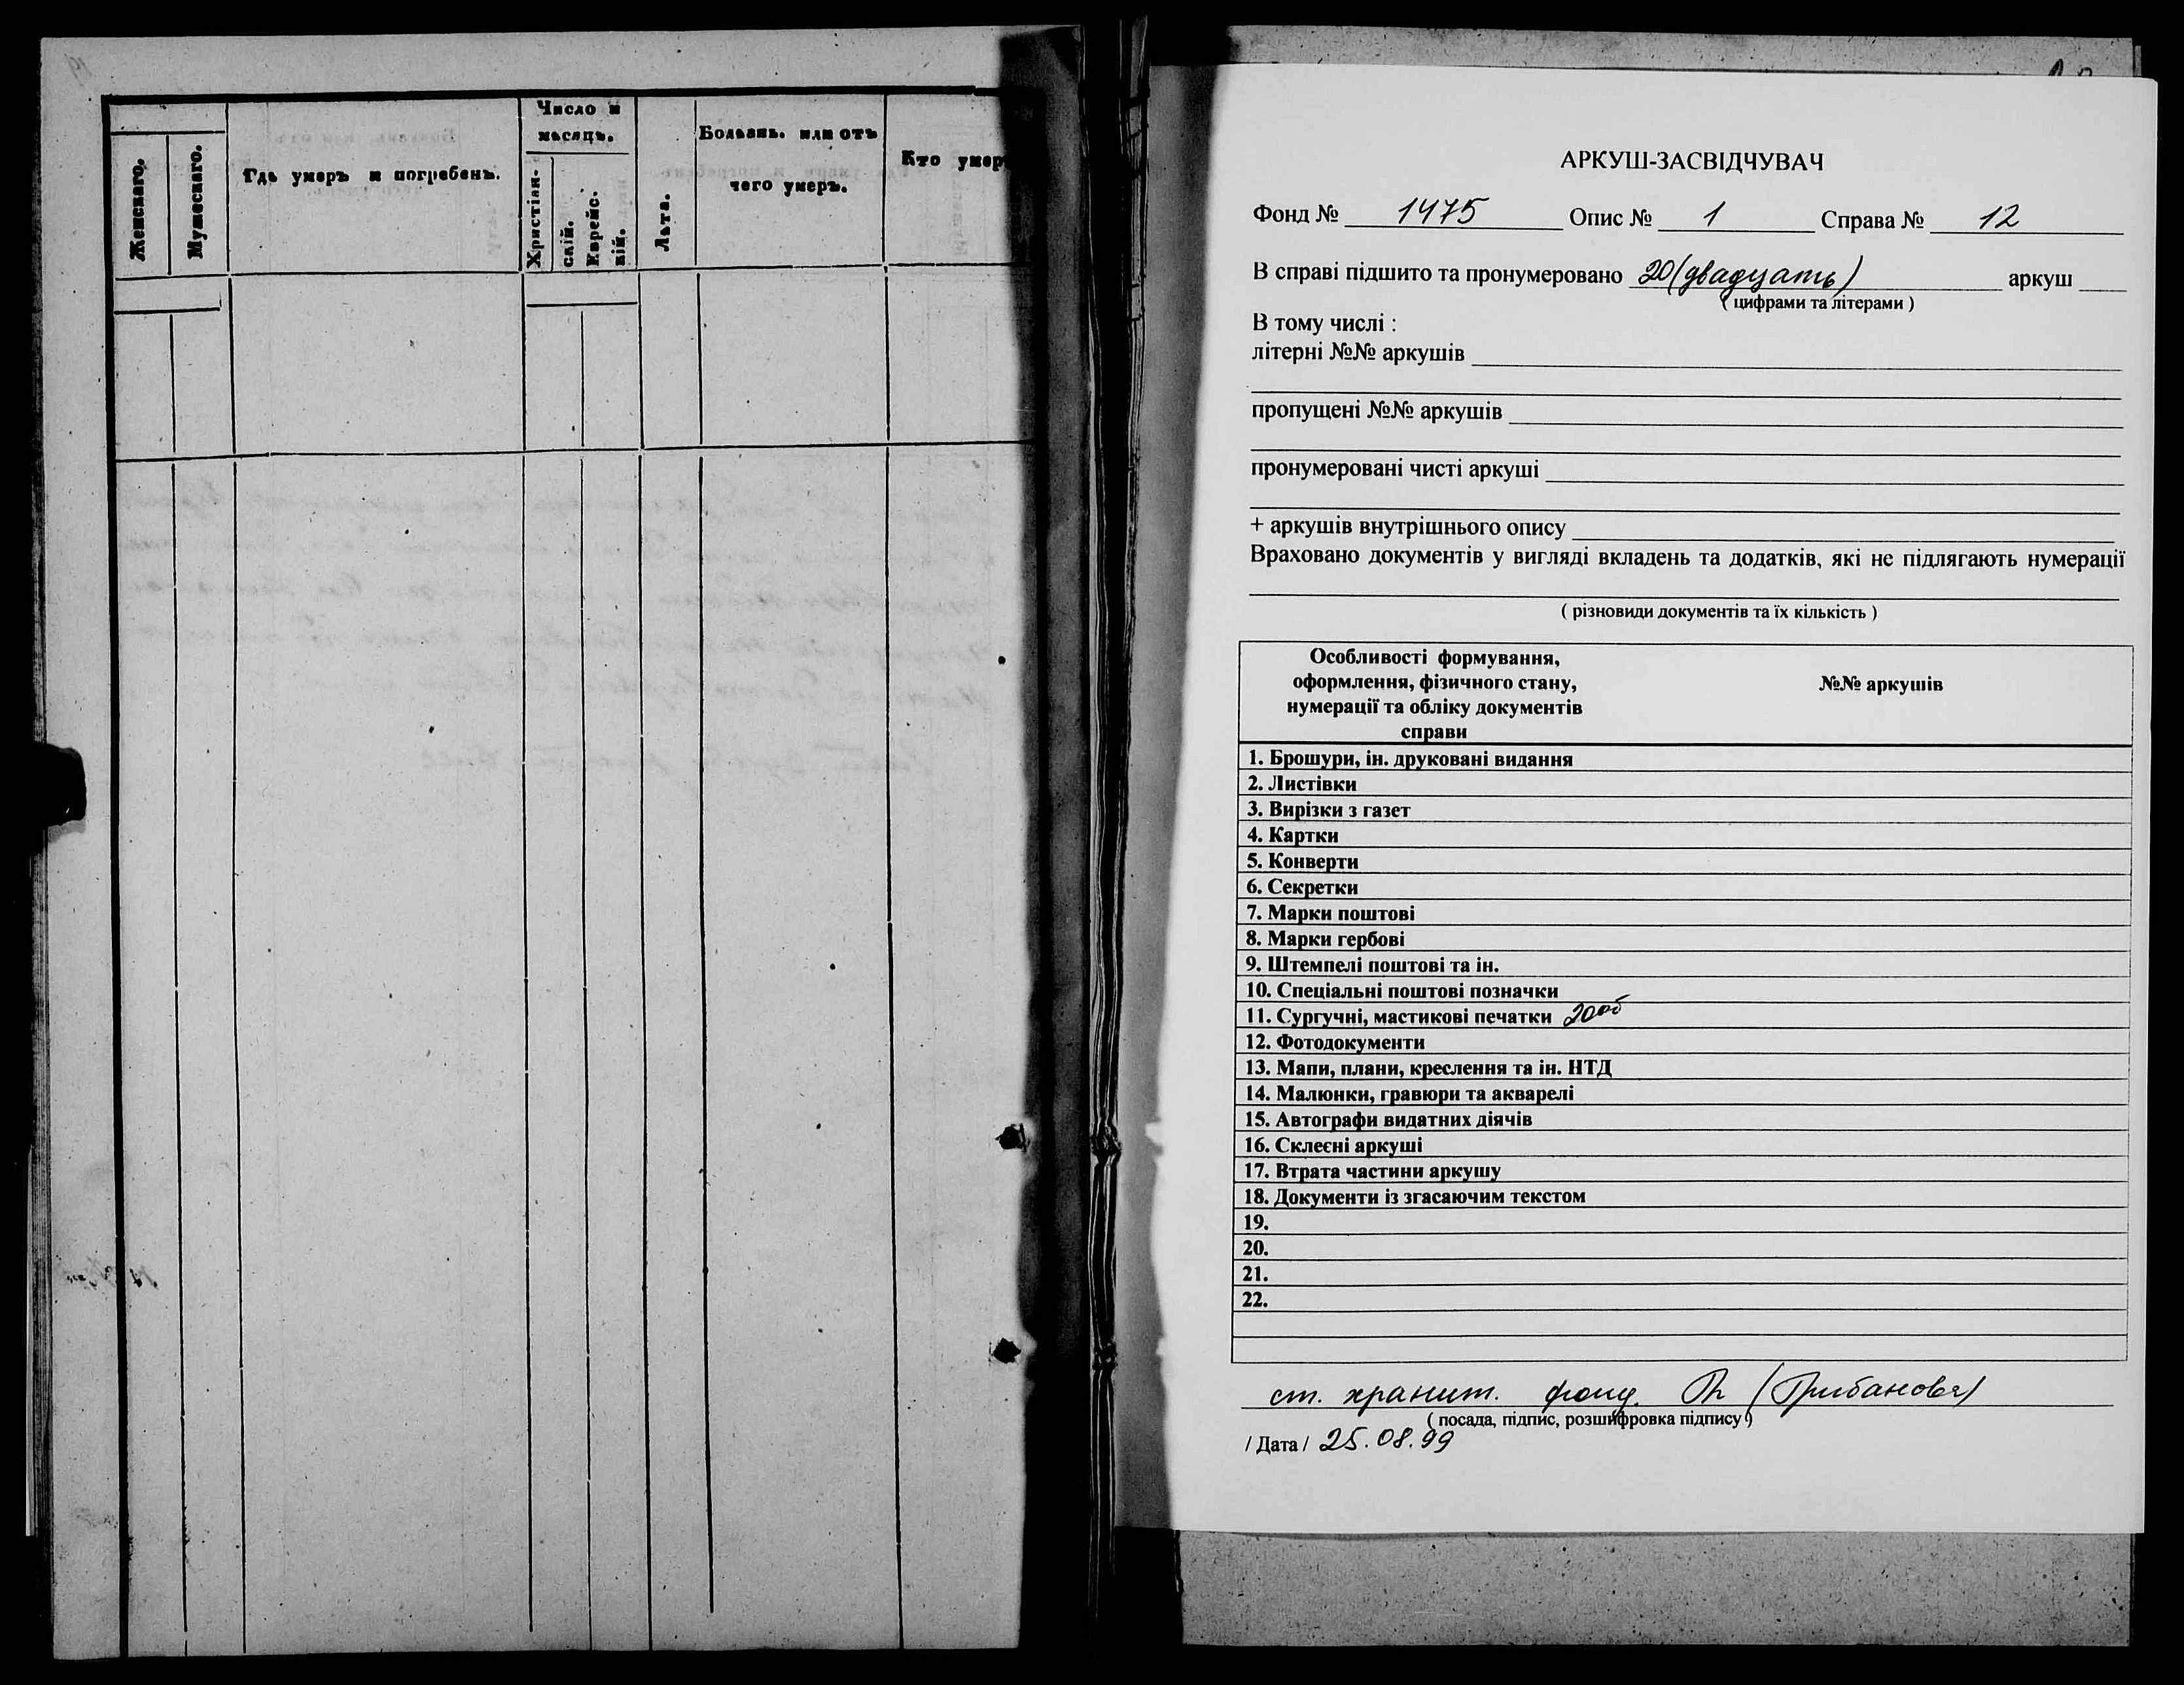 Женскаго.
Мужескаго.
Гдѣ умеръ и погребенъ.
Число и
мѣсяцъ.
Христіан-
скій.
Еврейс-
кій.
Лѣта.
Болѣзнь. или отъ
чего умеръ.
Кто умер
АРКУШ-ЗАСВІДЧУВАЧ
Фонд № 1475 Опис № 1 Справа № 12
В справі підшито та пронумеровано 20 (двадцать) аркуш
( цифрами та літерами )
В тому числі :
літерні №№ аркушів
пропущені №№ аркушів
пронумеровані чисті аркуші
+ аркушів внутрішнього опису
Враховано документів у вигляді вкладень та додатків, які не підлягають нумерації
( різновиди документів та їх кількість )
Особливості формування,
оформлення, фізичного стану,
нумерації та обліку документів
справи
№№ аркушів
1. Брошури, ін. друковані видання
2. Листівки
3. Вирізки з газет
4. Картки
5. Конверти
6. Секретки
7. Марки поштові
8. Марки гербові
9. Штемпелі поштові та ін.
10. Спеціальні поштові позначки
11. Сургучні, мастикові печатки 20об
12. Фотодокументи
13. Мапи, плани, креслення та ін. НТД
14. Малюнки, гравюри та акварелі
15. Автографи видатних діячів
16. Склеєні аркуші
17. Втрата частини аркушу
18. Документи із згасаючим текстом
19.
20.
21.
22.
ст. хранит. фонд. (Грибанова)
( посада, підпис, розшифровка підпису )
/ Дата / 25.08.99